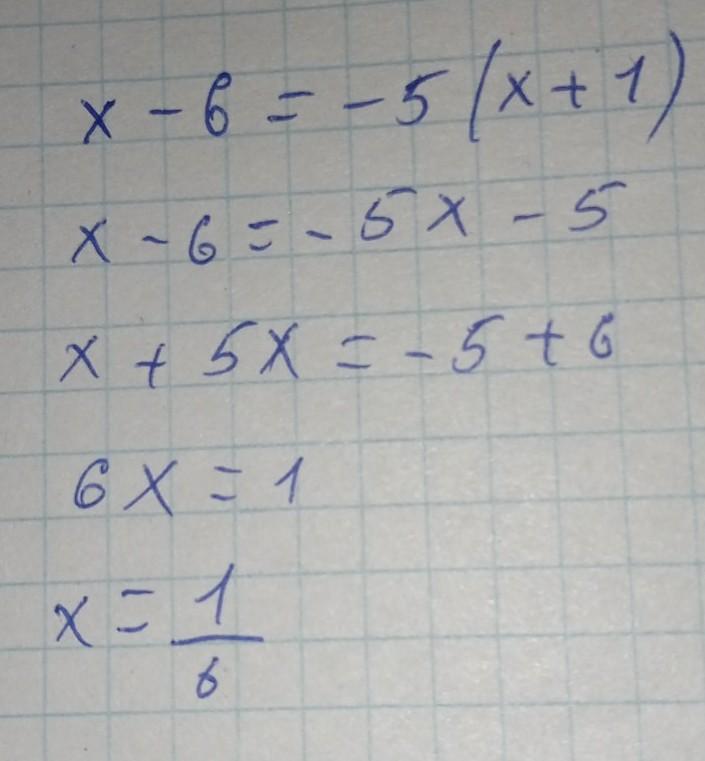 x - 6 = -5(x + 1)
x - 6 = -5x - 5
x + 5x = -5 + 6
6x = 1
x = 1/6